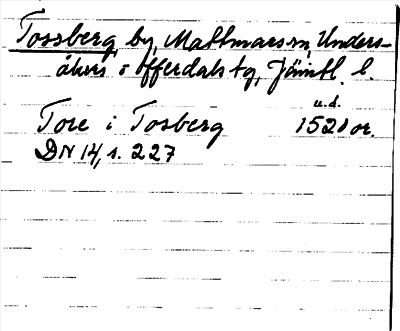 Tossberg, by, Mattmars sn, Unders-
åkers o Offerdals tg, Jämtl. l.
u.d.
Tore i Tosberg 1520 or.
DN 14, s. 227